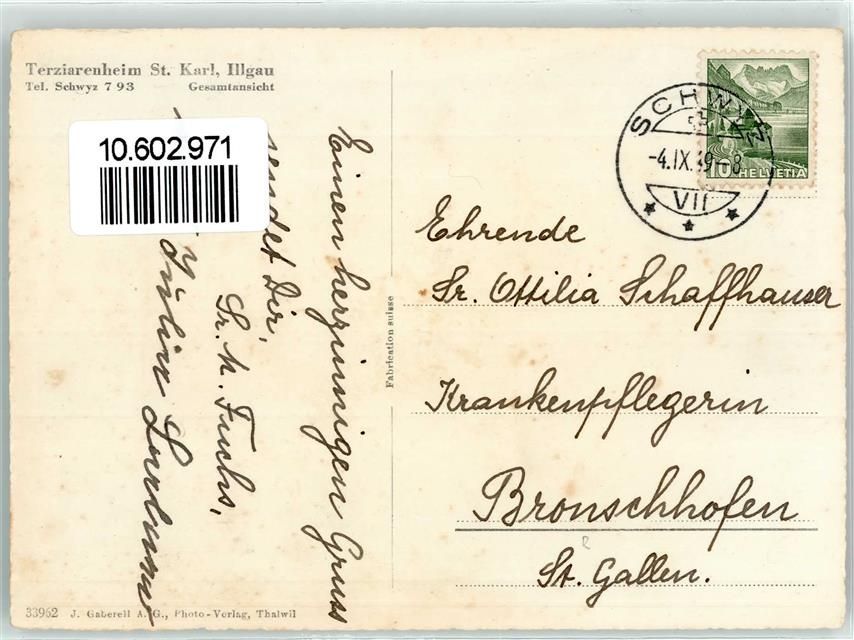 Terziarenheim St. Karl, Illgau
Tel. Schwyz 7 93 Gesamtansicht
10.602.971
Einen herzinnigen Gruss
sendet Dir,
Sr. M. Fuchs,
SCHWYZ
-4.IX.49-8
VII
10 HELVETIA
Ehrende
Sr. Ottilia Schaffhauser
Krankenpflegerin
Bronschhofen
St. Gallen.
Fabrication suisse
33962 J. Gaberell A.G., Photo-Verlag, Thalwil